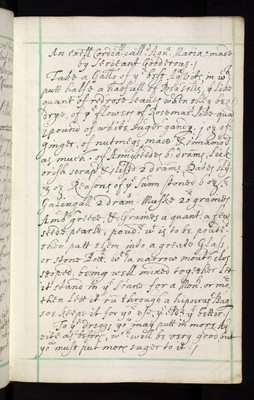 An Exelt Cordiall calld Aqua Maria, made
by Serieant Gooderous. /
Take a Gallo of ye best Aqua vitæ, in wch
putt halfe a handfull of Rosa solis, ye like
quant of redrose leaves when they are
drye, of ye flowers of Rosemary like qua
1 pound of white suger candy, j oz of
Ginger, of nutmegs, mace & sinnamō
as much, of Anny seeds 6: drams, Lick
orish scrap & slised 2 drams, Dates slic:
3: oz Reasons of ye sunn stoned 6 oz:
Galengall 2 dram. Muske 20 grames
Amb: greece, 6: Grames a quant. a few
seede pearle, poud: wt is to be pouder
then putt them into a greate Glass,
or stone Bott: wth a narrow mouth clos
stoped, being well mixed together let
it stand in ye sunn for a Mon: or mo
then let it ru through a hipocras Bag
soe keepe it for yor use, ye older ye better /
To ye dreggs you may putt in more Aq
vite as before, wch will be very good but
you must put more suger to it. /